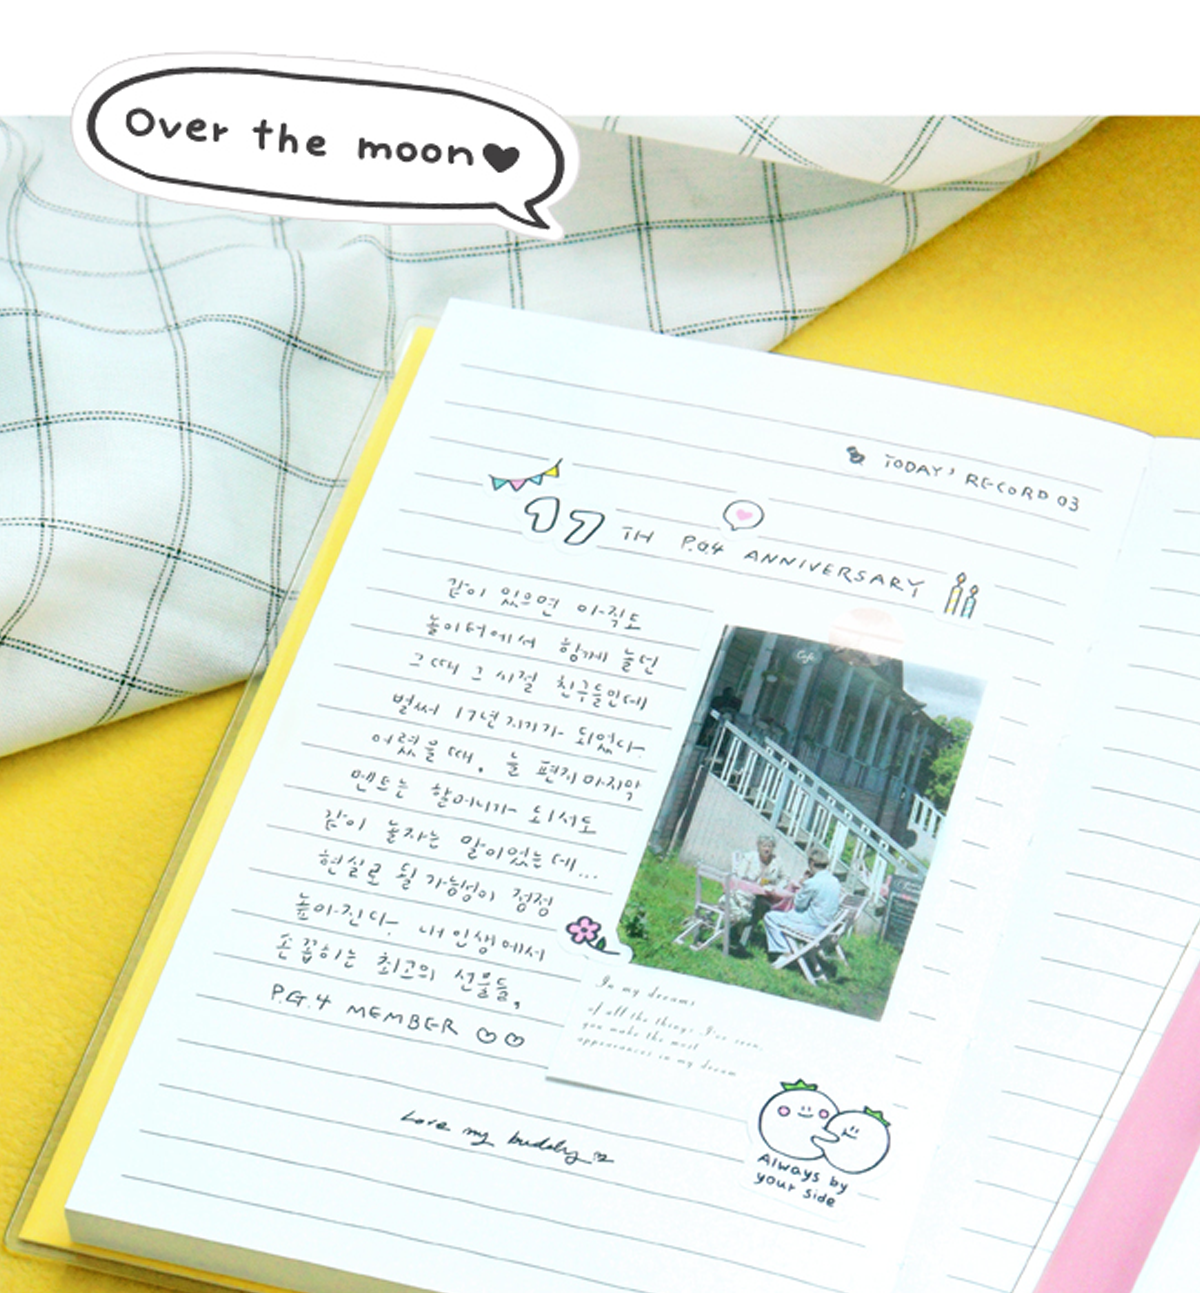 Over the moon♥
TODAY' RECORD 03
17 TH P.G.4 ANNIVERSARY
같이 있으면 아직도
놀이터에서 함께 놀던
그때 그 시절 친구들인데
벌써 17년지기가 되었다.
어렸을 때, 늘 편지 마지막
멘트는 할머니가 되서도
같이 놀자는 말이었는데...
현실로 될 가능성이 점점
높아진다. 내 인생에서
손 꼽히는 최고의 선물들,
P.G.4 MEMBER ♡♡
Cafe
In my dreams
of all the things I've seen,
you make the most
appearances in my dream
Love my buddy
Always by
your side